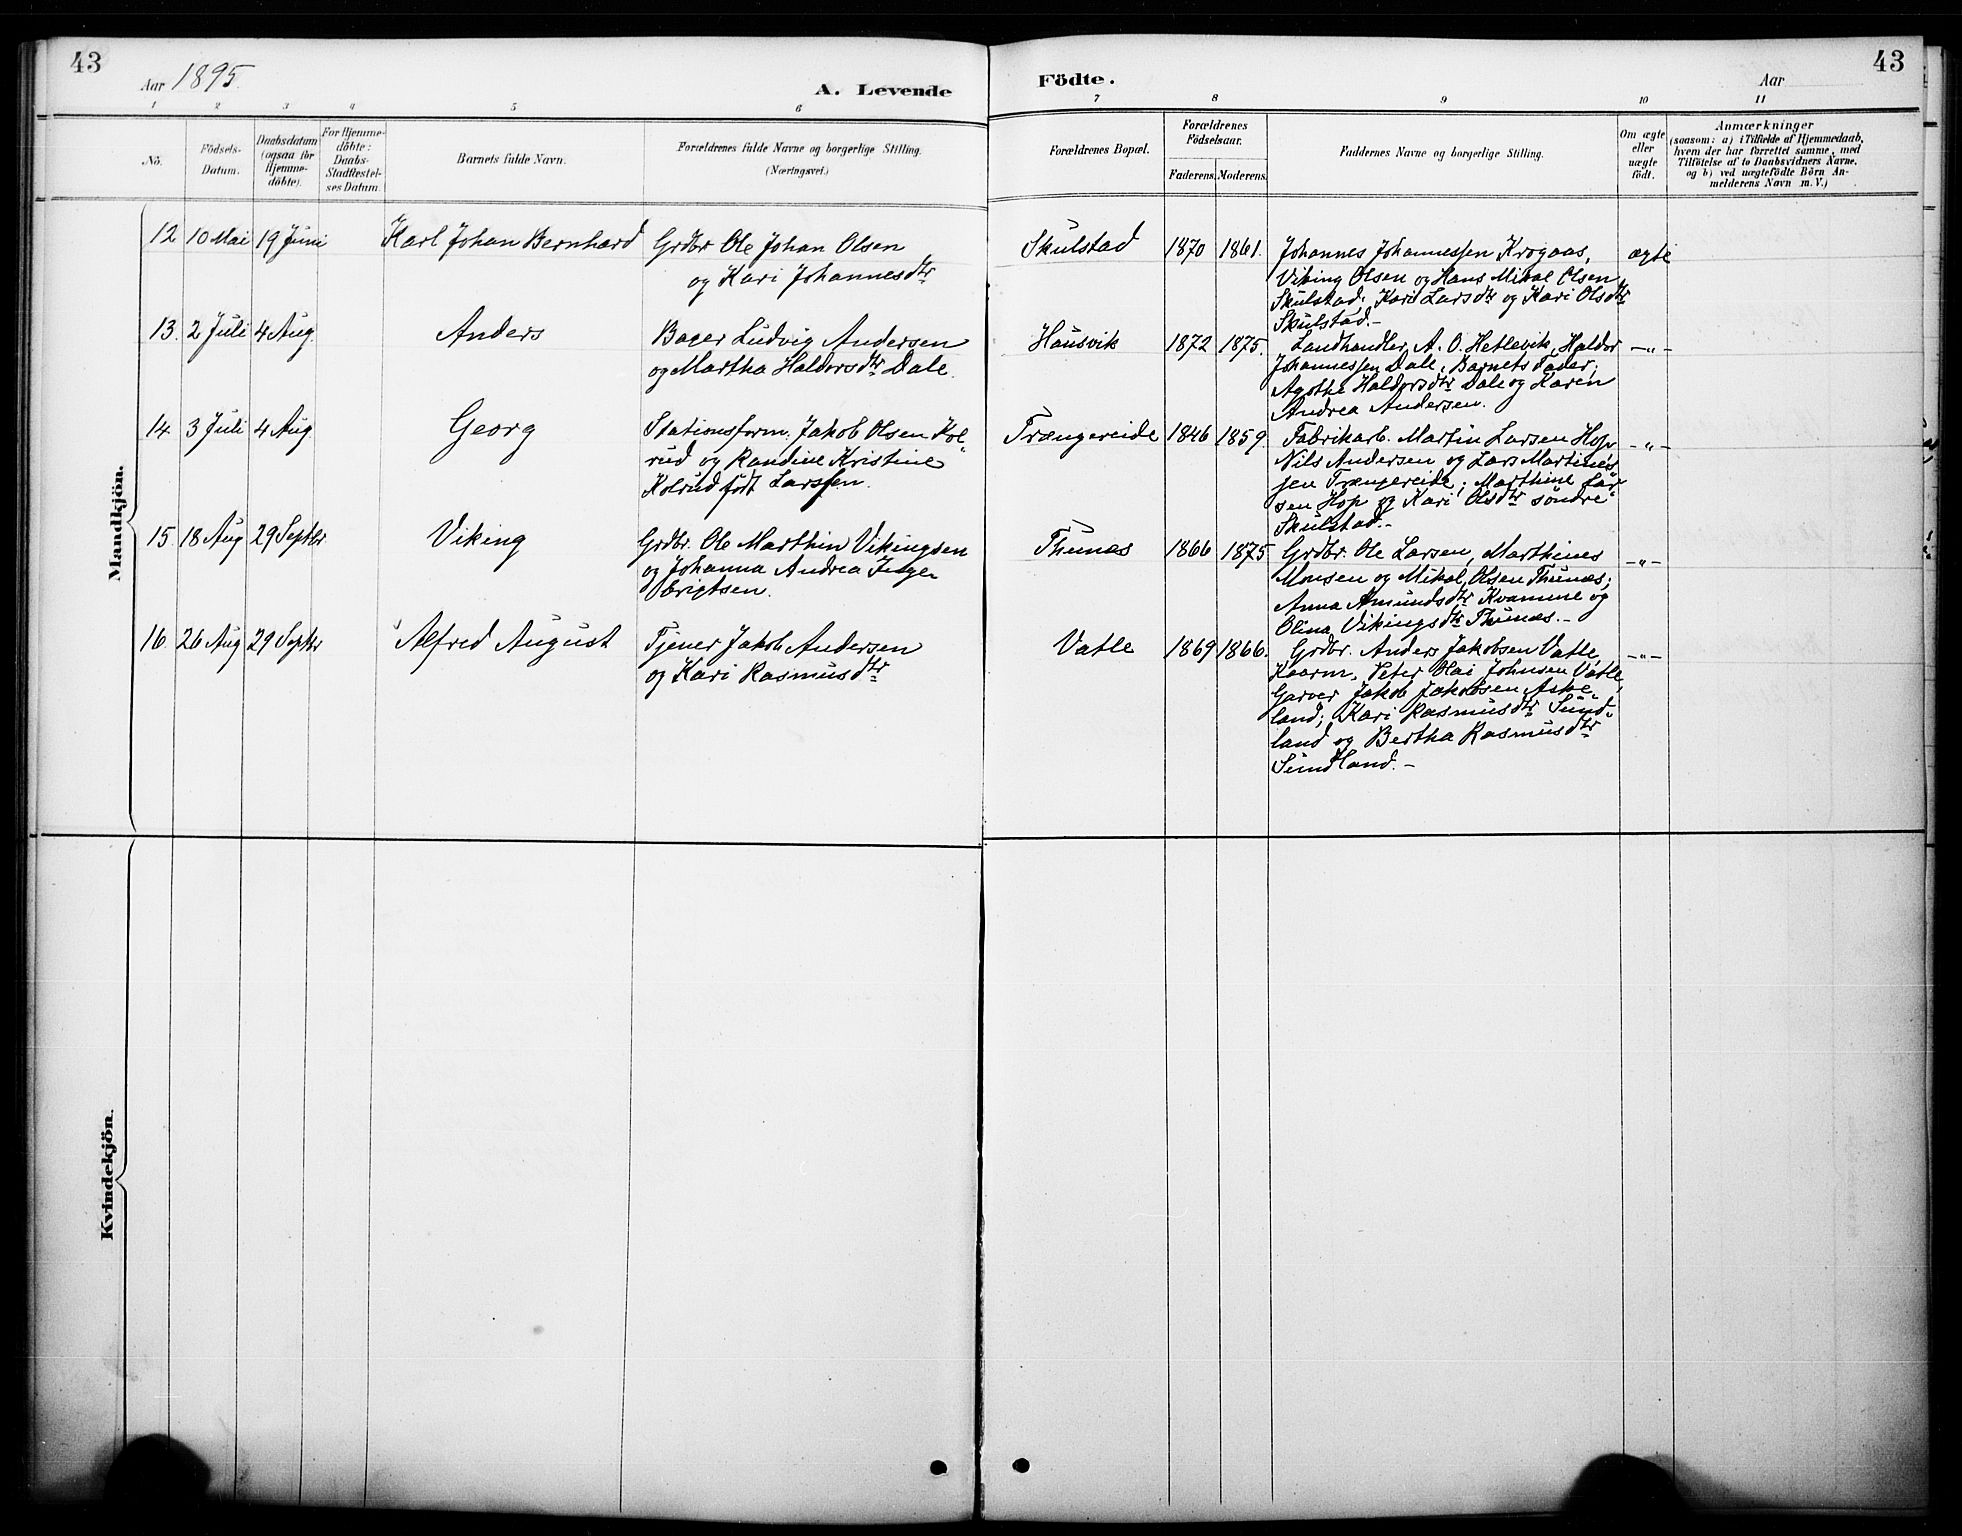 43
Aar 1895.
A. Levende
Födte.
Aar
43
1 2 3 4 5 6
7 8 9 10 11
No.
Födsels-
Datum.
Daabsdatum
(ogsaa for
Hjemme-
döbte).
For Hjemme-
döbte:
Daabs-
Stadfæstel-
ses Datum.
Barnets fulde Navn.
Forældrenes fulde Navne og borgerlige Stilling.
(Næringsvei.)
Forældrenes Bopæl.
Forældrenes
Födselsaar.
Faderens. Moderens.
Faddernes Navne og borgerlige Stilling.
Om ægte
eller
uægte
födt.
Anmærkninger
(saasom: a) i Tilfælde af Hjemmedaab,
hvem der har forrettet samme, med
Tilföielse af to Daabsvidners Navne,
og b) ved uægtefödte Börn An-
melderens Navn m. V.)
Mandkjön.
12 10 Mai 19 Juni Karl Johan Bernhard
Grdbr Ole Johan Olsen
og Kari Johannesdtr
Skulstad 1870 1861.
Johannes Johannessen Krogaas,
Viking Olsen og Hans Mikal Olsen
Skulstad; Kari Larsdtr og Kari Olsdtr
Skulstad.-
ægte
13. 2 Juli 4 Aug. Anders
Bager Ludvig Andersen
og Martha Haldorsdtr Dale.
Hausvik 1872 1875.
Landhandler A. O. Hetlevik, Haldor
Johannessen Dale, Barnets Fader;
Agothe Haldorsdtr Dale og Karen
Andrea Andersen.
-"-
14. 3 Juli 4 Aug. Georg
Stationsform. Jakob Olsen Kol-
rud og Randine Kristine
Kolrud födt Larssen.
Trængereide 1846 1859.
Fabrikarb. Martin Larsen Hop,
Nils Andersen og Lars Martines-
sen Trængereide; Marthine Lar-
sen Hop og Kari Olsdtr söndre
Skulstad.-
-"-
15. 18 Aug 29 Septbr Viking
Grdbr. Ole Marthin Vikingsen
og Johanna Andrea Inge-
brigtsen.
Thunæs 1866 1875
Grdbr. Ole Larsen, Marthines
Monsen og Mikal Olsen Thunæs;
Anna Amundsdtr Kvamme og
Olina Vikingsdtr Thunæs.-
-"-
16. 26 Aug 29 Septbr Alfred August
Tjener Jakob Andersen
og Kari Rasmusdtr
Vatle 1869 1866.
Grdbr. Anders Jakobsen Vatle,
Kaarm. Peter Olai Johnsen Vatle,
Garver Jakob Jakobsen Aske-
land; Kari Rasmusdtr Sund-
land og Bertha Rasmusdtr
Sundland.-
-"-
Kvindekjön.